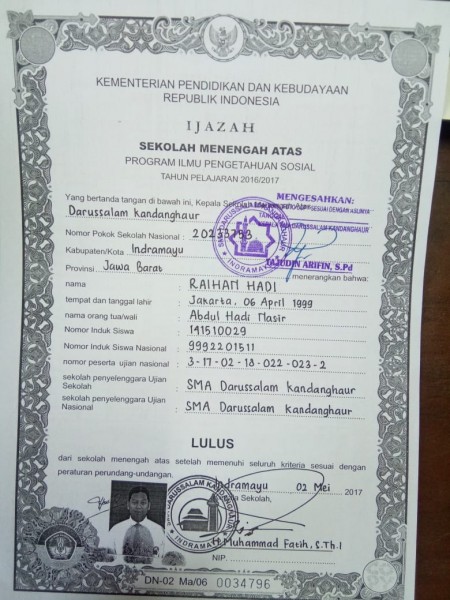 KEMENTERIAN PENDIDIKAN DAN KEBUDAYAAN
REPUBLIK INDONESIA
IJAZAH
SEKOLAH MENENGAH ATAS
PROGRAM ILMU PENGETAHUAN SOSIAL
TAHUN PELAJARAN 2016/2017
MENGESAHKAN:
SESUAI DENGAN ASLINYA
TANGGAL
DARUSSALAM KANDANGHAUR
TAJUDIN ARIFIN, S.Pd
Yang bertanda tangan di bawah ini, Kepala
Darussalam kandanghaur
Nomor Pokok Sekolah Nasional : 20233793
Kabupaten/Kota : Indramayu
Provinsi : Jawa Barat menerangkan bahwa:
nama : RAIHAN HADI
tempat dan tanggal lahir : Jakarta, 06 April 1999
nama orang tua/wali : Abdul Hadi Nasir
Nomor Induk Siswa : 141510029
Nomor Induk Siswa Nasional : 9992201511
nomor peserta ujian nasional : 3-17-02-18-022-023-2
sekolah penyelenggara Ujian
Sekolah : SMA Darussalam Kandanghaur
sekolah penyelenggara Ujian
Nasional : SMA Darussalam Kandanghaur
LULUS
dari sekolah menengah atas setelah memenuhi seluruh kriteria sesuai dengan
peraturan perundang-undangan.
Indramayu 02 Mei 2017
Kepala Sekolah,
DARUSSALAM KANDANGHAUR
INDRAMAYU
H. Muhammad Fatih, S.Th.I
NIP.
DN-02 Ma/06 0034796